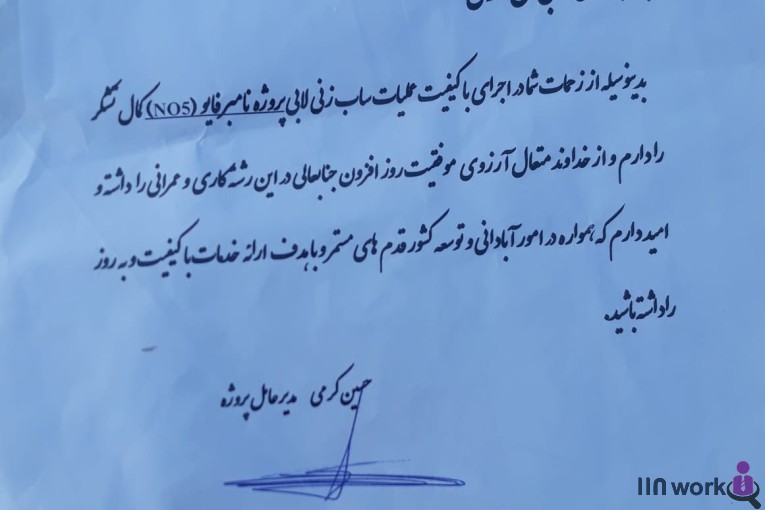 بدینوسیله از زحمات شما در اجرای با کیفیت عملیات ساب زنی لابی پروژه نامبر فایو (NO5) کمال تشکر
را دارم و از خداوند متعال آرزوی موفقیت روز افزون جنابعالی در این رشته کاری و عمرانی را داشته و
امید دارم که همواره در امور آبادانی و توسعه کشور قدم های مستمر و با هدف ارائه خدمات با کیفیت و به روز
را داشته باشید.
حسین کرمی مدیر عامل پروژه
118 work